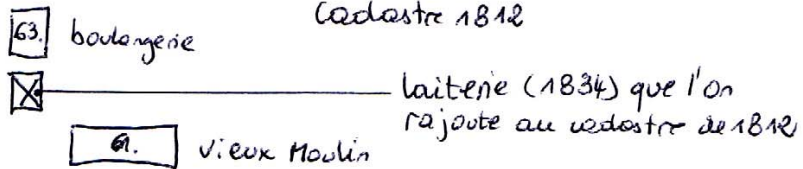 Cadastre 1812
63. boulangerie
laiterie (1834) que l'on
rajoute au cadastre de 1812
61. Vieux Moulin